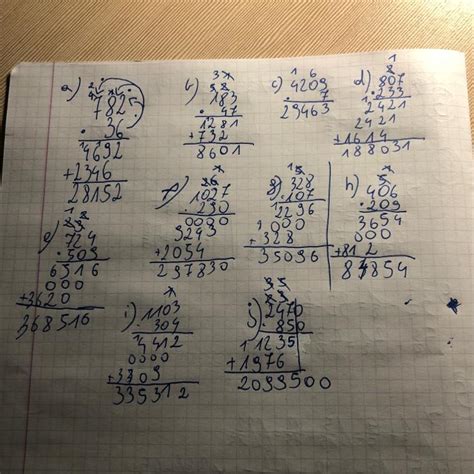 a) 782
· 36
4692
+2346
28152
b) 183
· 47
1281
+732
8601
1 6
c) 4209
· 7
29463
1 8
d) 807
· 233
2421
2421
+1614
188031
e) 724
· 509
6516
000
+3620
368516
f) 1027
· 290
0000
9243
+2054
297830
g) 328
· 107
2296
000
+328
35096
h) 406
· 209
3654
000
+812
84854
i) 1103
· 304
4412
0000
+3309
335312
j) 2470
· 850
1235
+1976
2099500